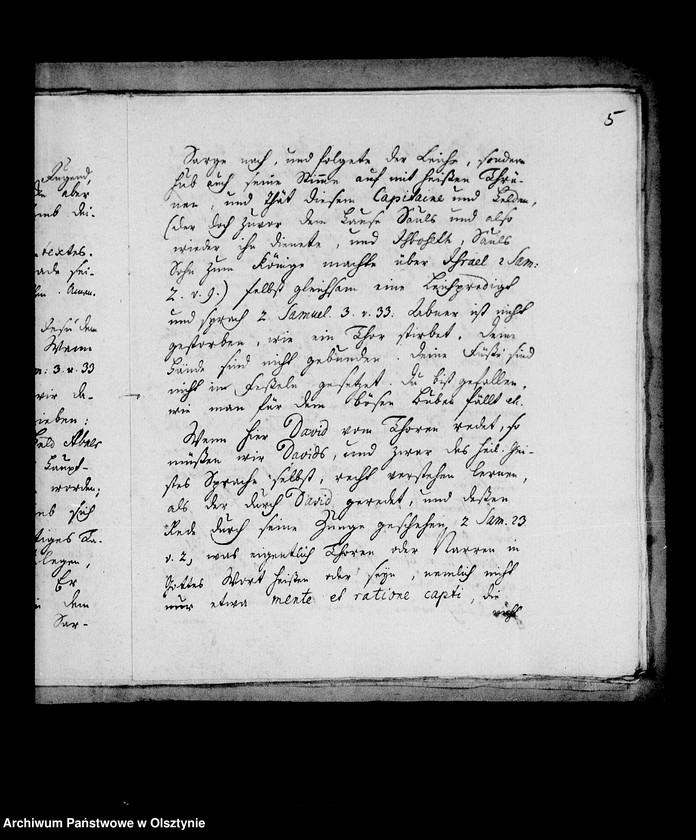 5
Jugend,
die aber
und Dei-
textes.
ade sei-
: Amen.
Jesu dem
Wann
m: 3. v. 33
wir da-
ieben:
Held Abners
Haupt-
worden;
und sich
tiges Ta-
legen,
Er
dem
Sar-
Sarge nach, und folgete der Leiche, sondern
hub auch seine Stimme auf mit heißen Thrä-
nen, und thät diesem Capitaine und Helden,
(der doch zuvor dem Hause Sauls und also
wieder ihn dienete, und Isboseth, Sauls
Sohn zum Könige machte über Israel 2 Sam:
2. v. 9.) selbst gleichsam eine Leichpredigt
und sprach 2. Samuel. 3. v. 33: Abner ist nicht
gestorben, wie ein Thor stirbet. Deine
Hände sind nicht gebunden. deine Füße sind
nicht in Feßeln gesetzet. du bist gefallen,
wie man für dem bösen Buben fällt etc.
Wenn hier David vom Thoren redet, so
müßen wir Davids, und zwar des heil. Gei-
stes Sprache selbst, recht verstehen lernen,
als der durch David geredet, und deßen
Rede durch seine Zunge geschehen, 2 Sam. 23
v. 2, was eigentlich Thoren oder Narren in
Gottes Wort heißen oder seyn, nemlich nicht
nur etwa mente et ratione capti, die
nicht
Archiwum Państwowe w Olsztynie